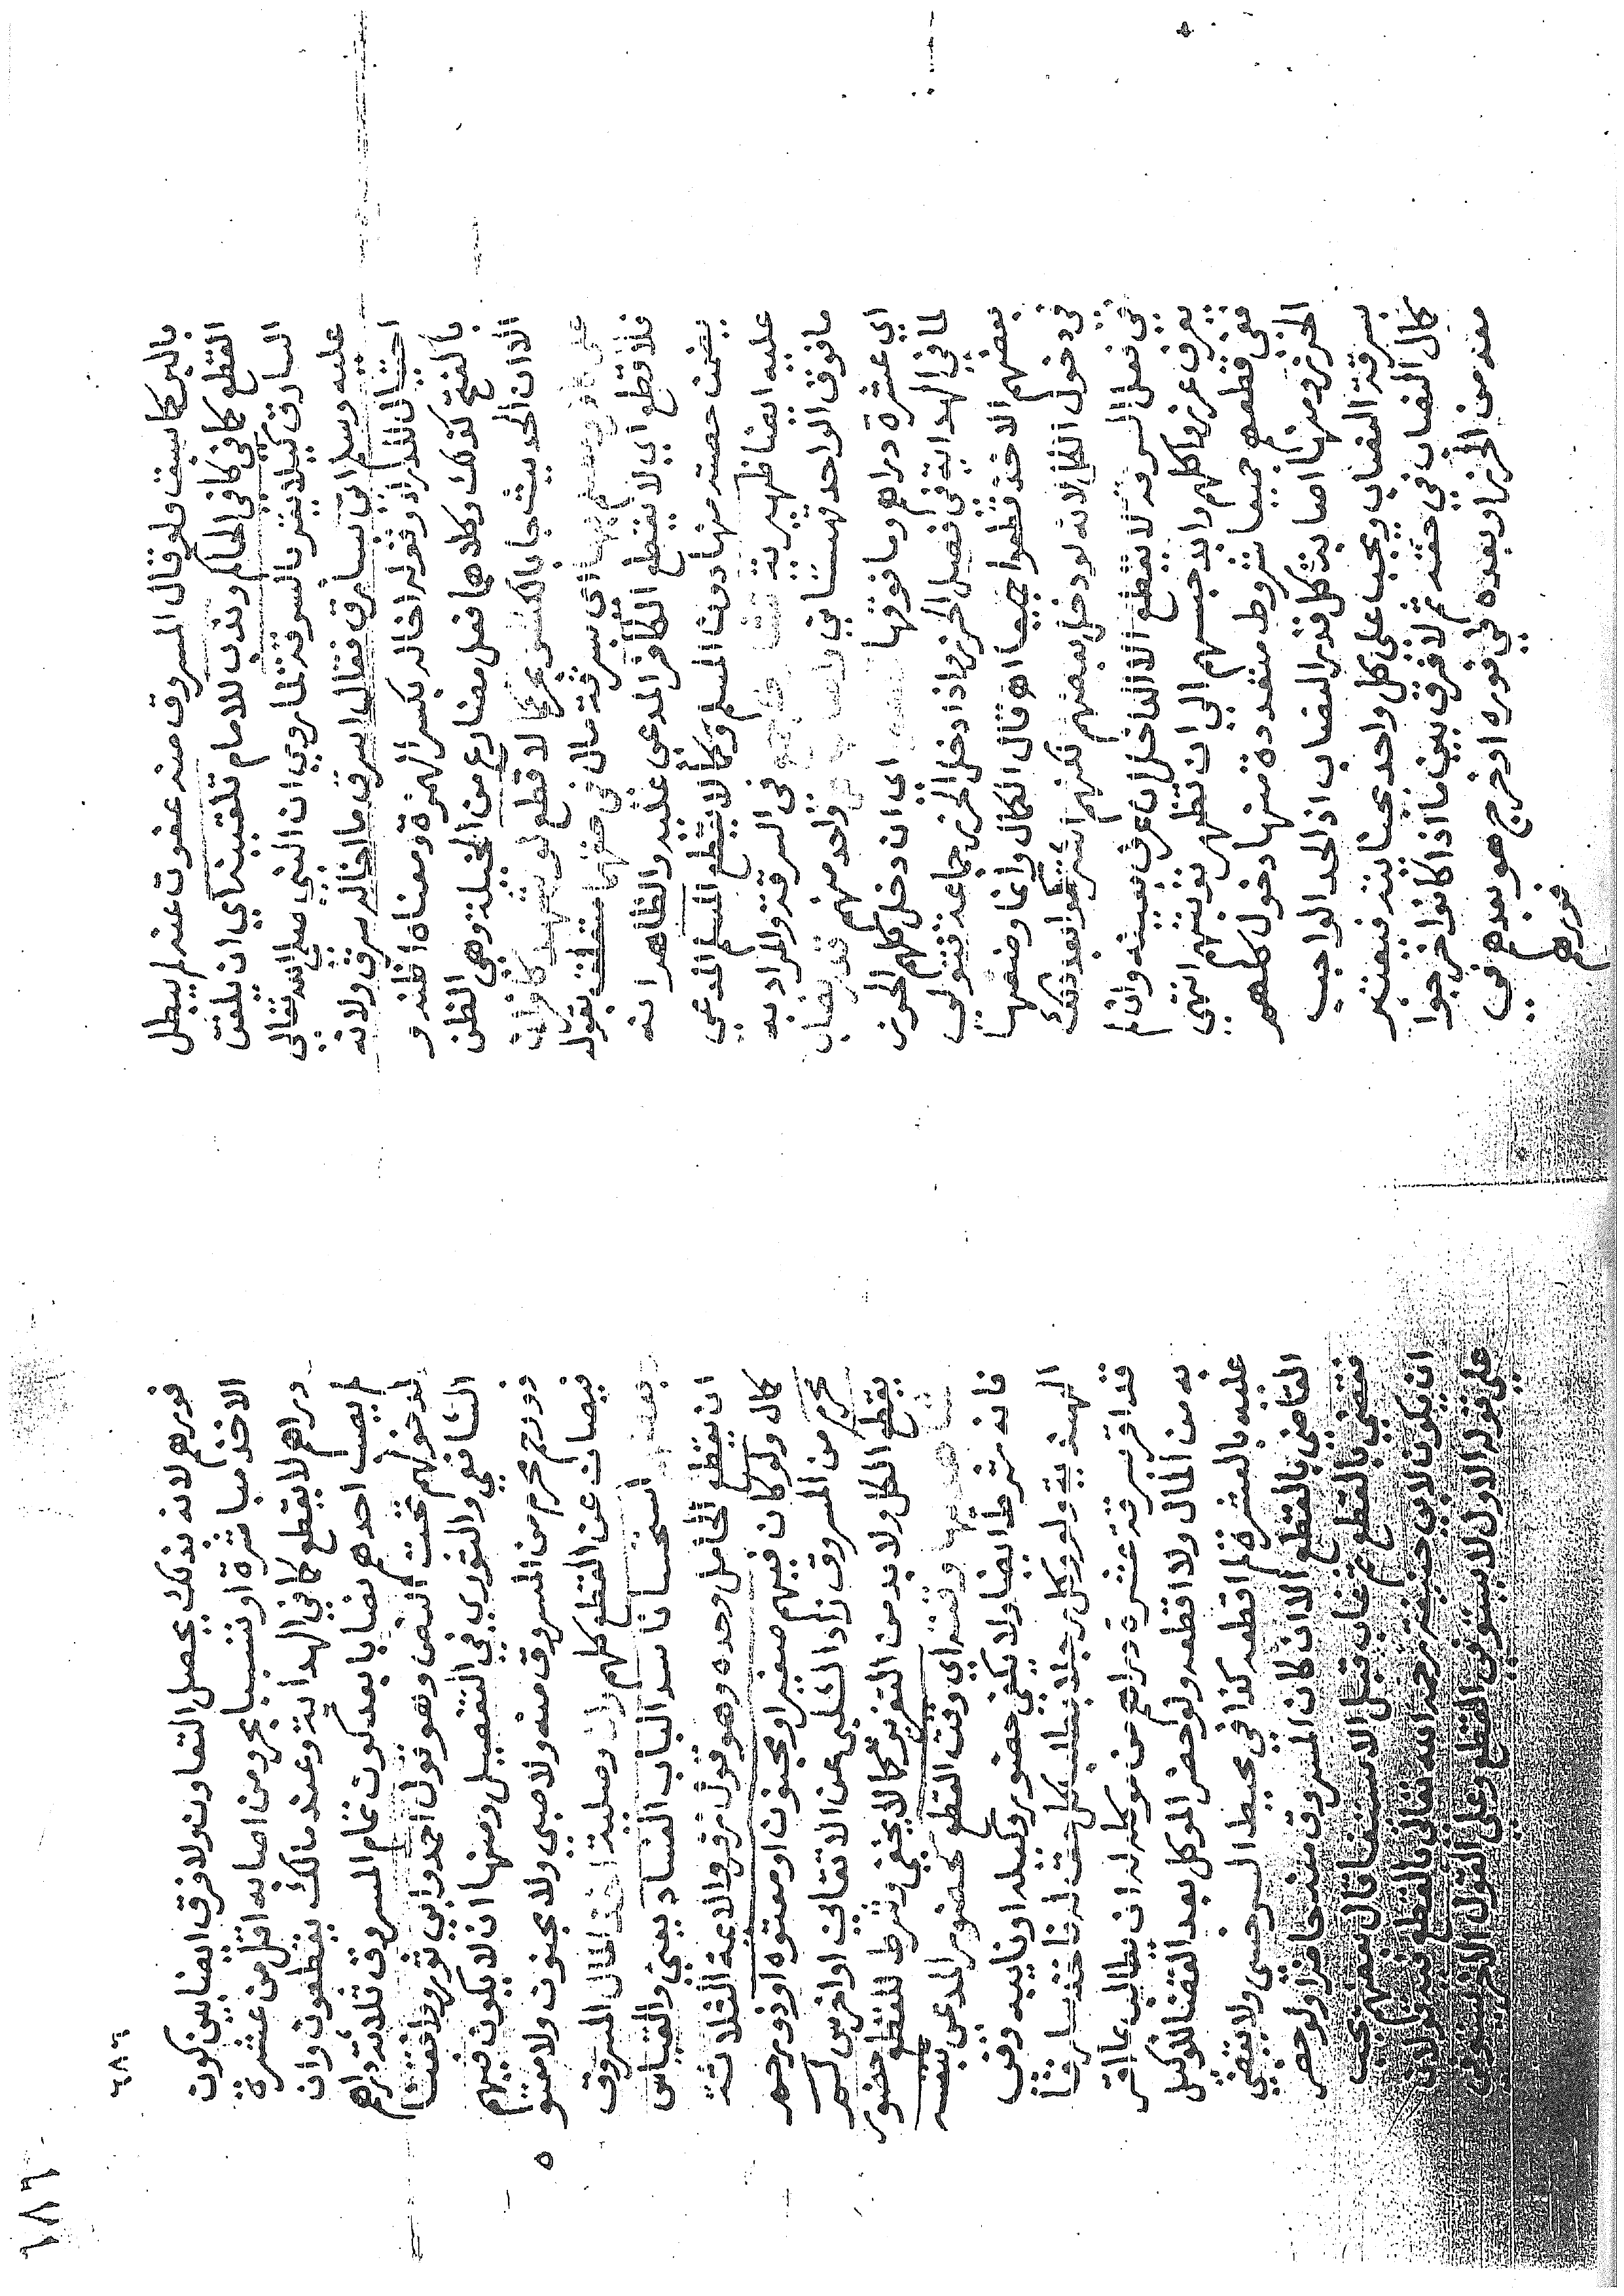 بالبركما سبق ولو قال المسروق منه عفوت عنه لم يبطل
القطع كما في كافي الحاكم وندب للامام تلقينه اي ان يلقن
السارق كيلا يقر بالسرقة لما روي ان النبي صلى الله تعالى
عليه وسلم اتي بسارق فقال اسرق ما اخاله سرق ولانه
احتيال للدرا وقوله اخاله بكسر الهمزة ومعناه اظنه و
بالفتح كذلك وكلاهما فعل مضارع من المخيلة وهي الظن
الا ان الحديث جا بالكسر كما لا قطع لو شهد كافران
على كافر ومسلم بها اي بسرقة مال في حقهما متعلق بقوله
فلا قطع اي لا يقطع الكافر المدعى عليه والظاهر انه
يضمن حصته منها دون المسلم وكما لا يقطع المسلم المدعى
عليه ايضا ظهيرية في السرقة والمراد به
ما فوق الواحد قهستاني واحد منهم قدر نصاب
اي عشرة دراهم وما فوقها اي ان دخل كلهم الحرز
لما في الهداية في فصل الحرز واذا دخل الحرز جماعة فتولى
بعضهم الاخذ قطعوا جميعا اه قال الكمال وانما وضعها
في دخول الكل لانه لو دخل بعضهم لكنهم اشتركوا بعد ذلك
في فعل السرقة لا يقطع الا الداخل ان عرف بعينه وان لم
يعرف عزروا كلهم وابد حبسهم الى ان تظهر توبتهم انتهى
ففي قطعهم جميعا شروط متعددة منها دخول كلهم
الحرز ومنها اصابة كل قدر النصاب اذ الحد الواجب
بسرقة النصاب ويجب على كل واحد بجنايته فيعتبر
كمال النصاب في حقه ثم لا فرق بين ما اذا كانوا خرجوا
معه من الحرز او بعده في فوره او خرج هو بعدهم في
فورهم
١٨٦
٦٨٦
فورهم لانه بذلك يحصل التعاون ولا فرق ايضا بين كون
الاخذ مباشرة او تسببا بحرو من اصابه اقل من عشرة
دراهم لا يقطع كما في الهداية وعند مالك يقطعون وان
لم يصب احدهم نصابا بعد كون تمام المسروق ثلاثة دراهم
لدخولهم تحت النص وهو قول احمد وابي ثور ووافقنا
الشافعي والثوري في التفصيل ومنها ان لا يكون فيهم
ذو رحم محرم من المسروق منه ولا صبي ولا مجنون ولا معتو
ه
فيصان عن القطع كلهم وان وصلية اخذ المال المسروق
بعضهم استحسانا سدا لباب الفساد يعني والقياس
ان يقطع الحامل وحده وهو قول زفر والايمة الثلاثة
كمال ولو كان فيهم صغير او مجنون او معتوه او ذو رحم
محرم من المسروق زاد الشلبي عن الاتقاني او اخرس لم
يقطع الكل ولا بد من التعزير كما لا يخفى وشرط للقطع حضور
شاهديها وقته اي وقت القطع كحضور المدعي بنفسه
فانه شرط ايضا ولا يكفي حضور وكيله او نايبه وفي
الهنديه ولو وكل رجلا بطلب كل حق له فاخذ سارقا
قد اقر بسرقة عشرة دراهم من موكله له ان يطالب بما اقر
به من المال ولا اقطعه ولو حضر الموكل بعد القضا للوكيل
عليه بالعشرة لم اقطعه كذا في محيط السرخسي ولا يقضي
القاضي بالقطع الا ان كان المسروق منه حاضرا ولو حضر
فقضي بالقطع ثم غاب قبل الاستيفا قال بعضهم يجب
ان يكون لابي حنيفة رحمه الله تعالى بالقطع فيه قولان
على قوله الاول لا يستوفى القطع وعلى القول الاخر يستوفى